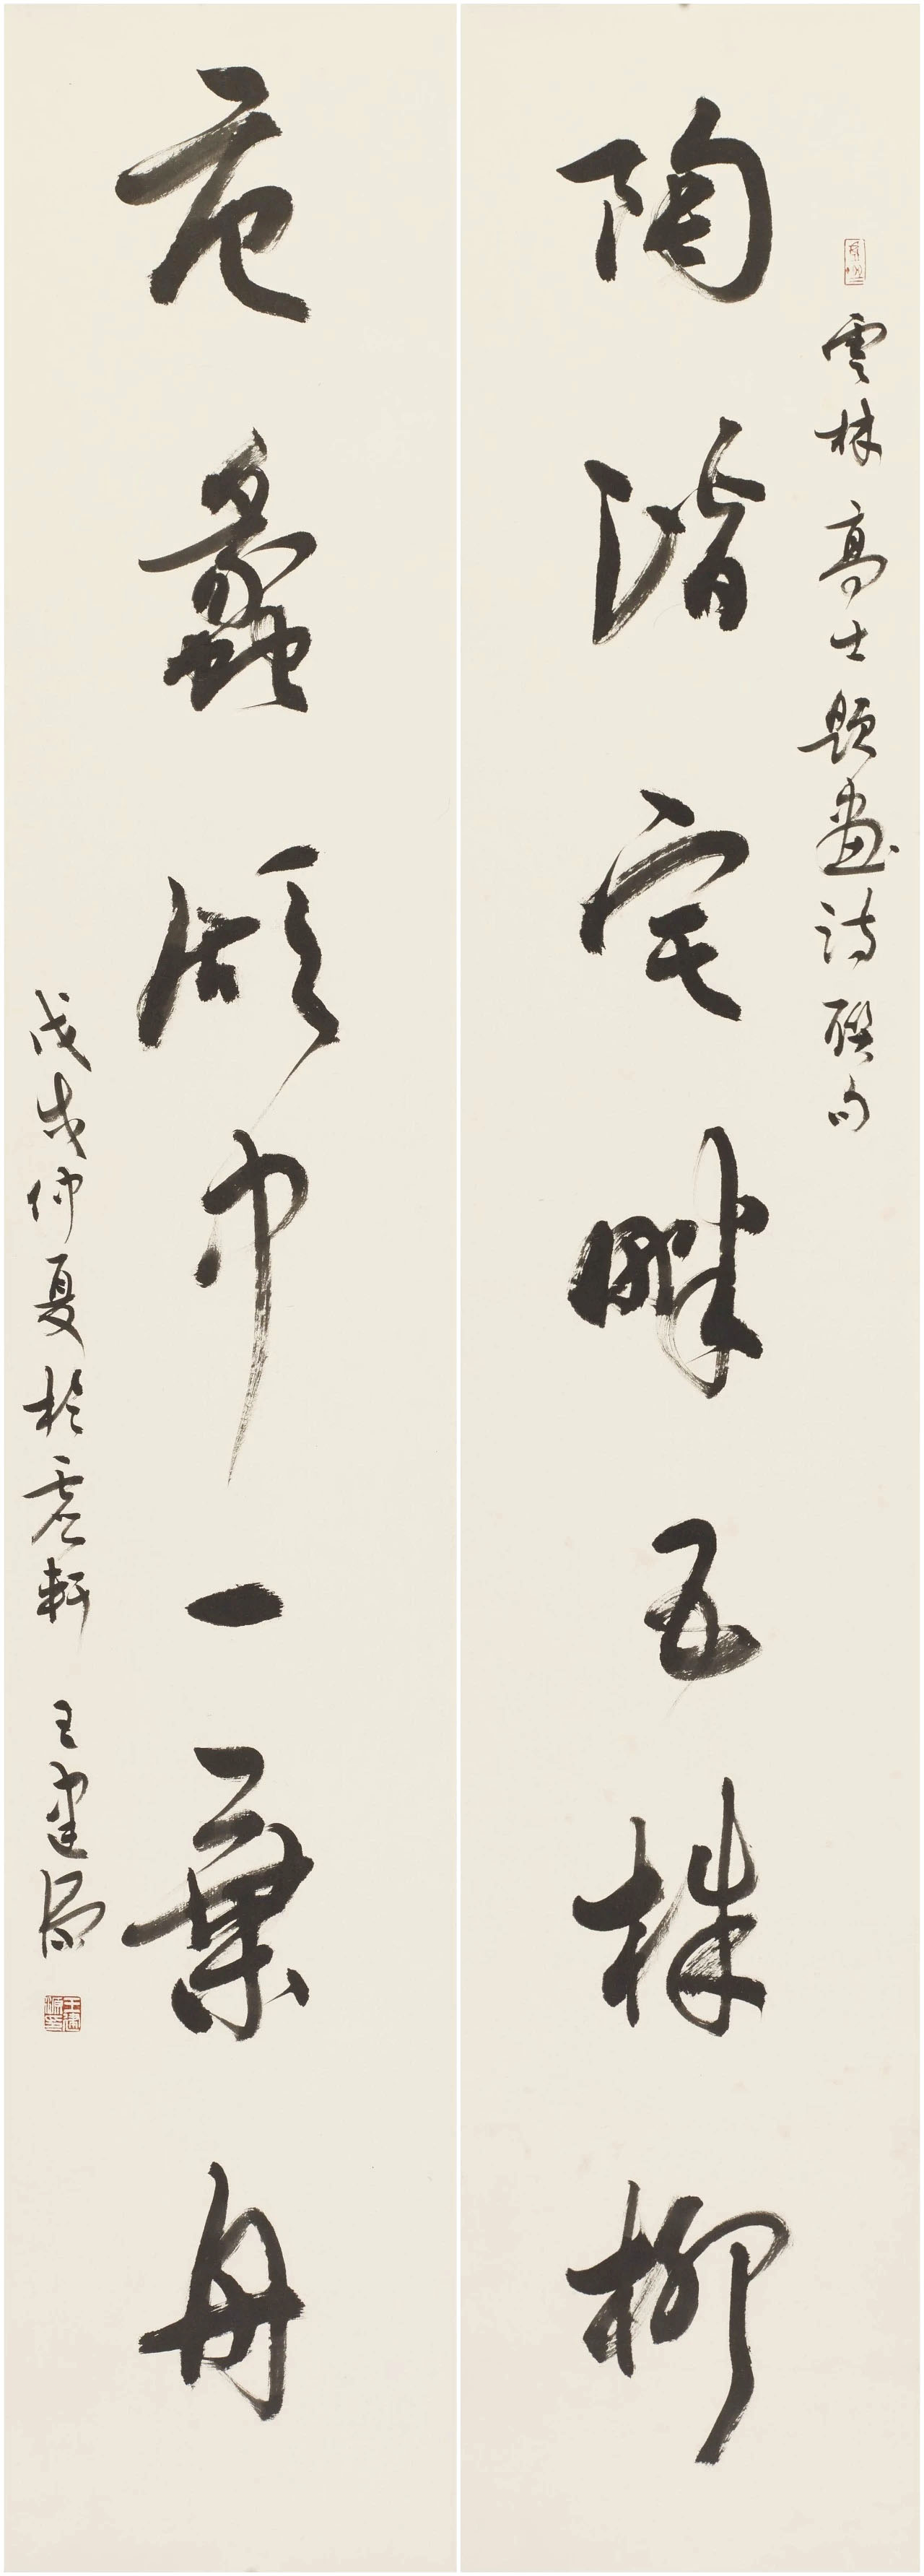 雲林高士題畫詩聯句
陶潛宅畔五株柳
范蠡湖中一葉舟
戊戌仲夏於虛軒 王建源
王建源印